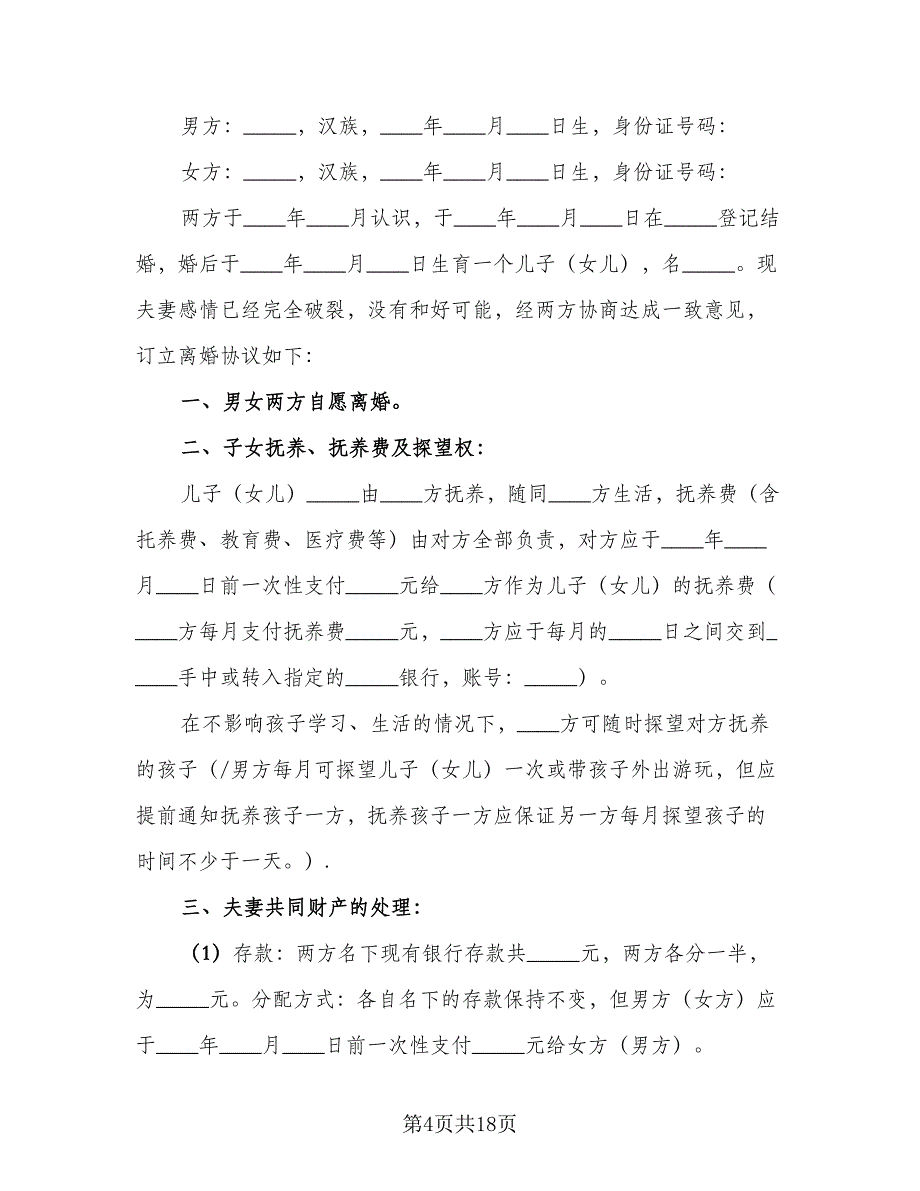 男方：_____，汉族，____年____月____日生，身份证号码：
女方：_____，汉族，____年____月____日生，身份证号码：
两方于____年____月认识，于____年____月____日在_____登记结
婚，婚后于____年____月____日生育一个儿子（女儿），名_____。现
夫妻感情已经完全破裂，没有和好可能，经两方协商达成一致意见，
订立离婚协议如下：
一、男女两方自愿离婚。
二、子女抚养、抚养费及探望权：
儿子（女儿）_____由____方抚养，随同____方生活，抚养费（含
托养费、教育费、医疗费等）由对方全部负责，对方应于____年____
月____日前一次性支付_____元给____方作为儿子（女儿）的抚养费（
____方每月支付抚养费_____元，____方应于每月的_____日之间交到_
____手中或转入指定的_____银行，账号：_____）。
在不影响孩子学习、生活的情况下，____方可随时探望对方抚养
的孩子（/男方每月可探望儿子（女儿）一次或带孩子外出游玩，但应
提前通知抚养孩子一方，抚养孩子一方应保证另一方每月探望孩子的
时间不少于一天。）.
三、夫妻共同财产的处理：
（1）存款：两方名下现有银行存款共_____元，两方各分一半，
为_____元。分配方式：各自名下的存款保持不变，但男方（女方）应
于____年____月____日前一次性支付_____元给女方（男方）。
第4页共18页